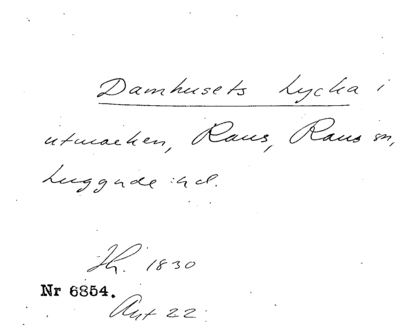 Damhusets Lycka i
utmarken, Raus, Raus sn,
Luggude hd.
Jh. 1830
Nr 6854.
Akt 22